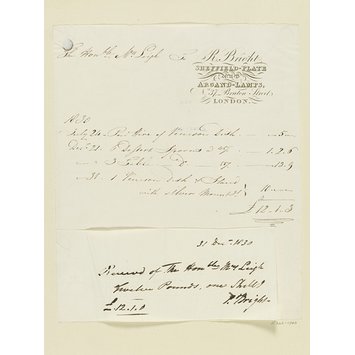 The Honble Mrs Leigh To
R. Bright
SHEFFIELD-PLATE
ARGAND-LAMPS,
Bruton Street
LONDON.
1830
July 24 The Hire of Venison Dish — 5 —
Decr 21 6 Dessert Spoons 1. 2. 6
3 Table Do 13. 9
31 1 Venison Dish & Stand
with Silver Mounts 10
£ 12. 1. 3
31 Decr 1830
Received of The Honble Mrs Leigh
Twelve Pounds, one Shillg
£12.1.0 R. Bright